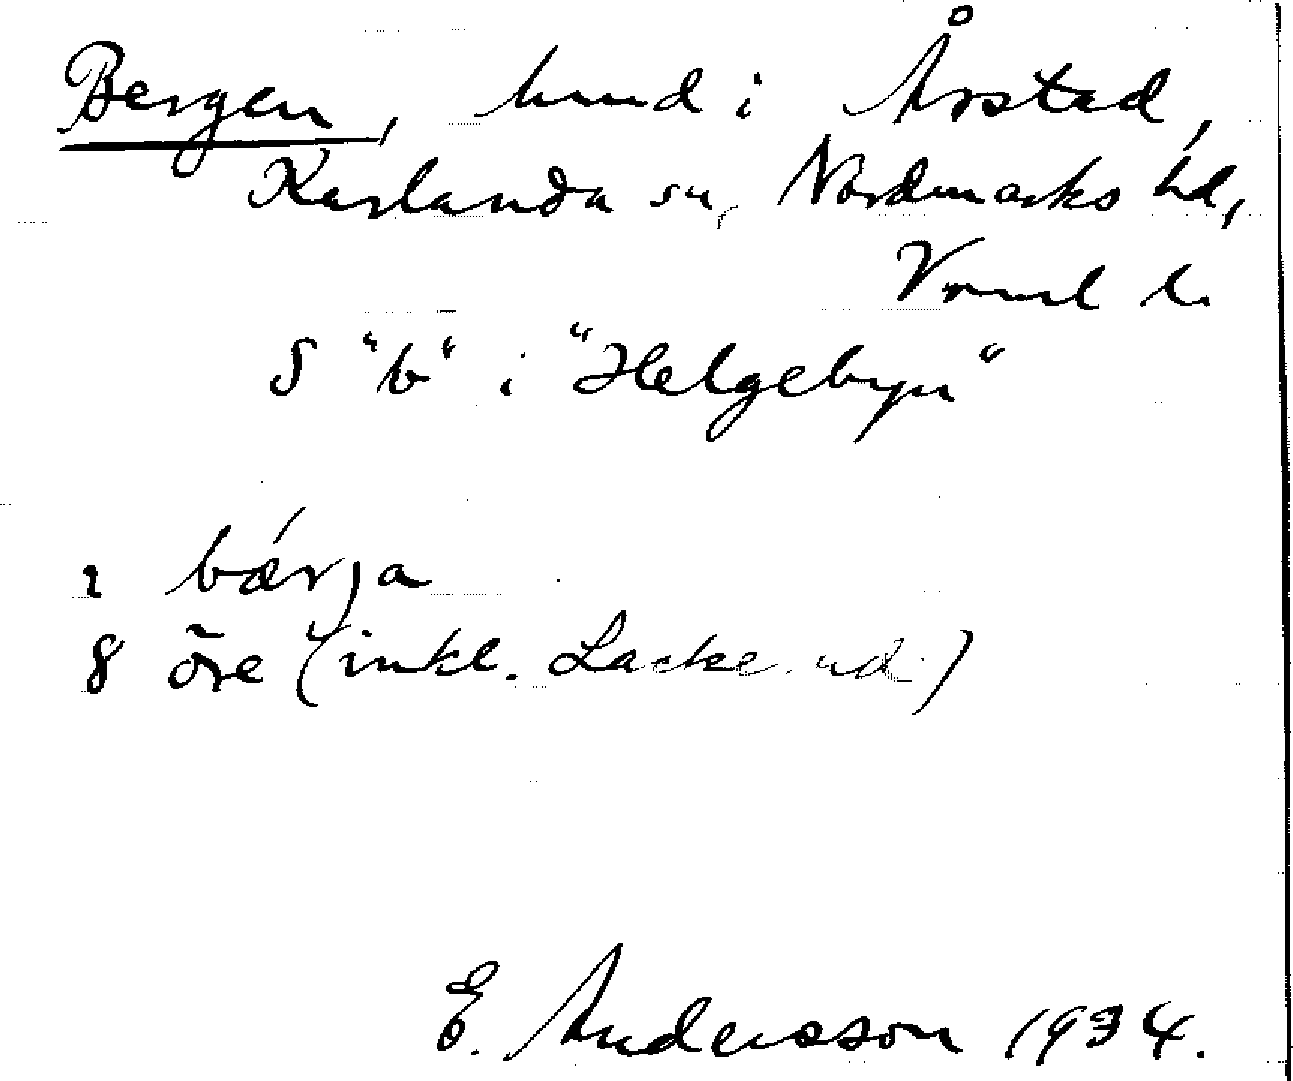 Bergen, hmd i Årstad,
Karlanda sn, Nordmarks hd,
Vrml l.
S "b" i "Helgebyn"
1 bǽrja
8 öre (inkl. Lacke. ud.)
E. Andersson 1934.